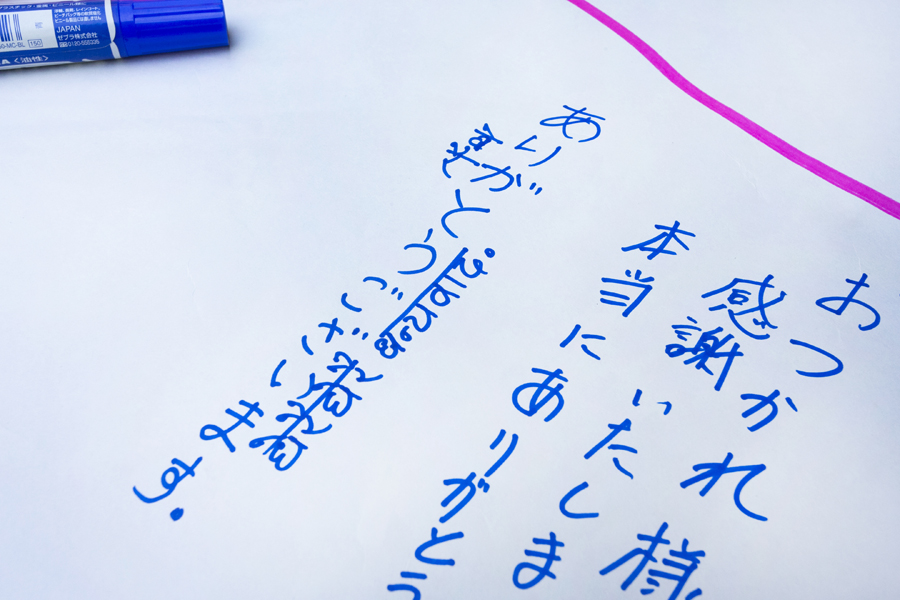 JAPAN
ゼブラ株式会社
-MC-BL
150
〈油性〉
おつかれ様
感謝いたしま
本当にありがとう
ありがとうございます。
धन्यवाद.